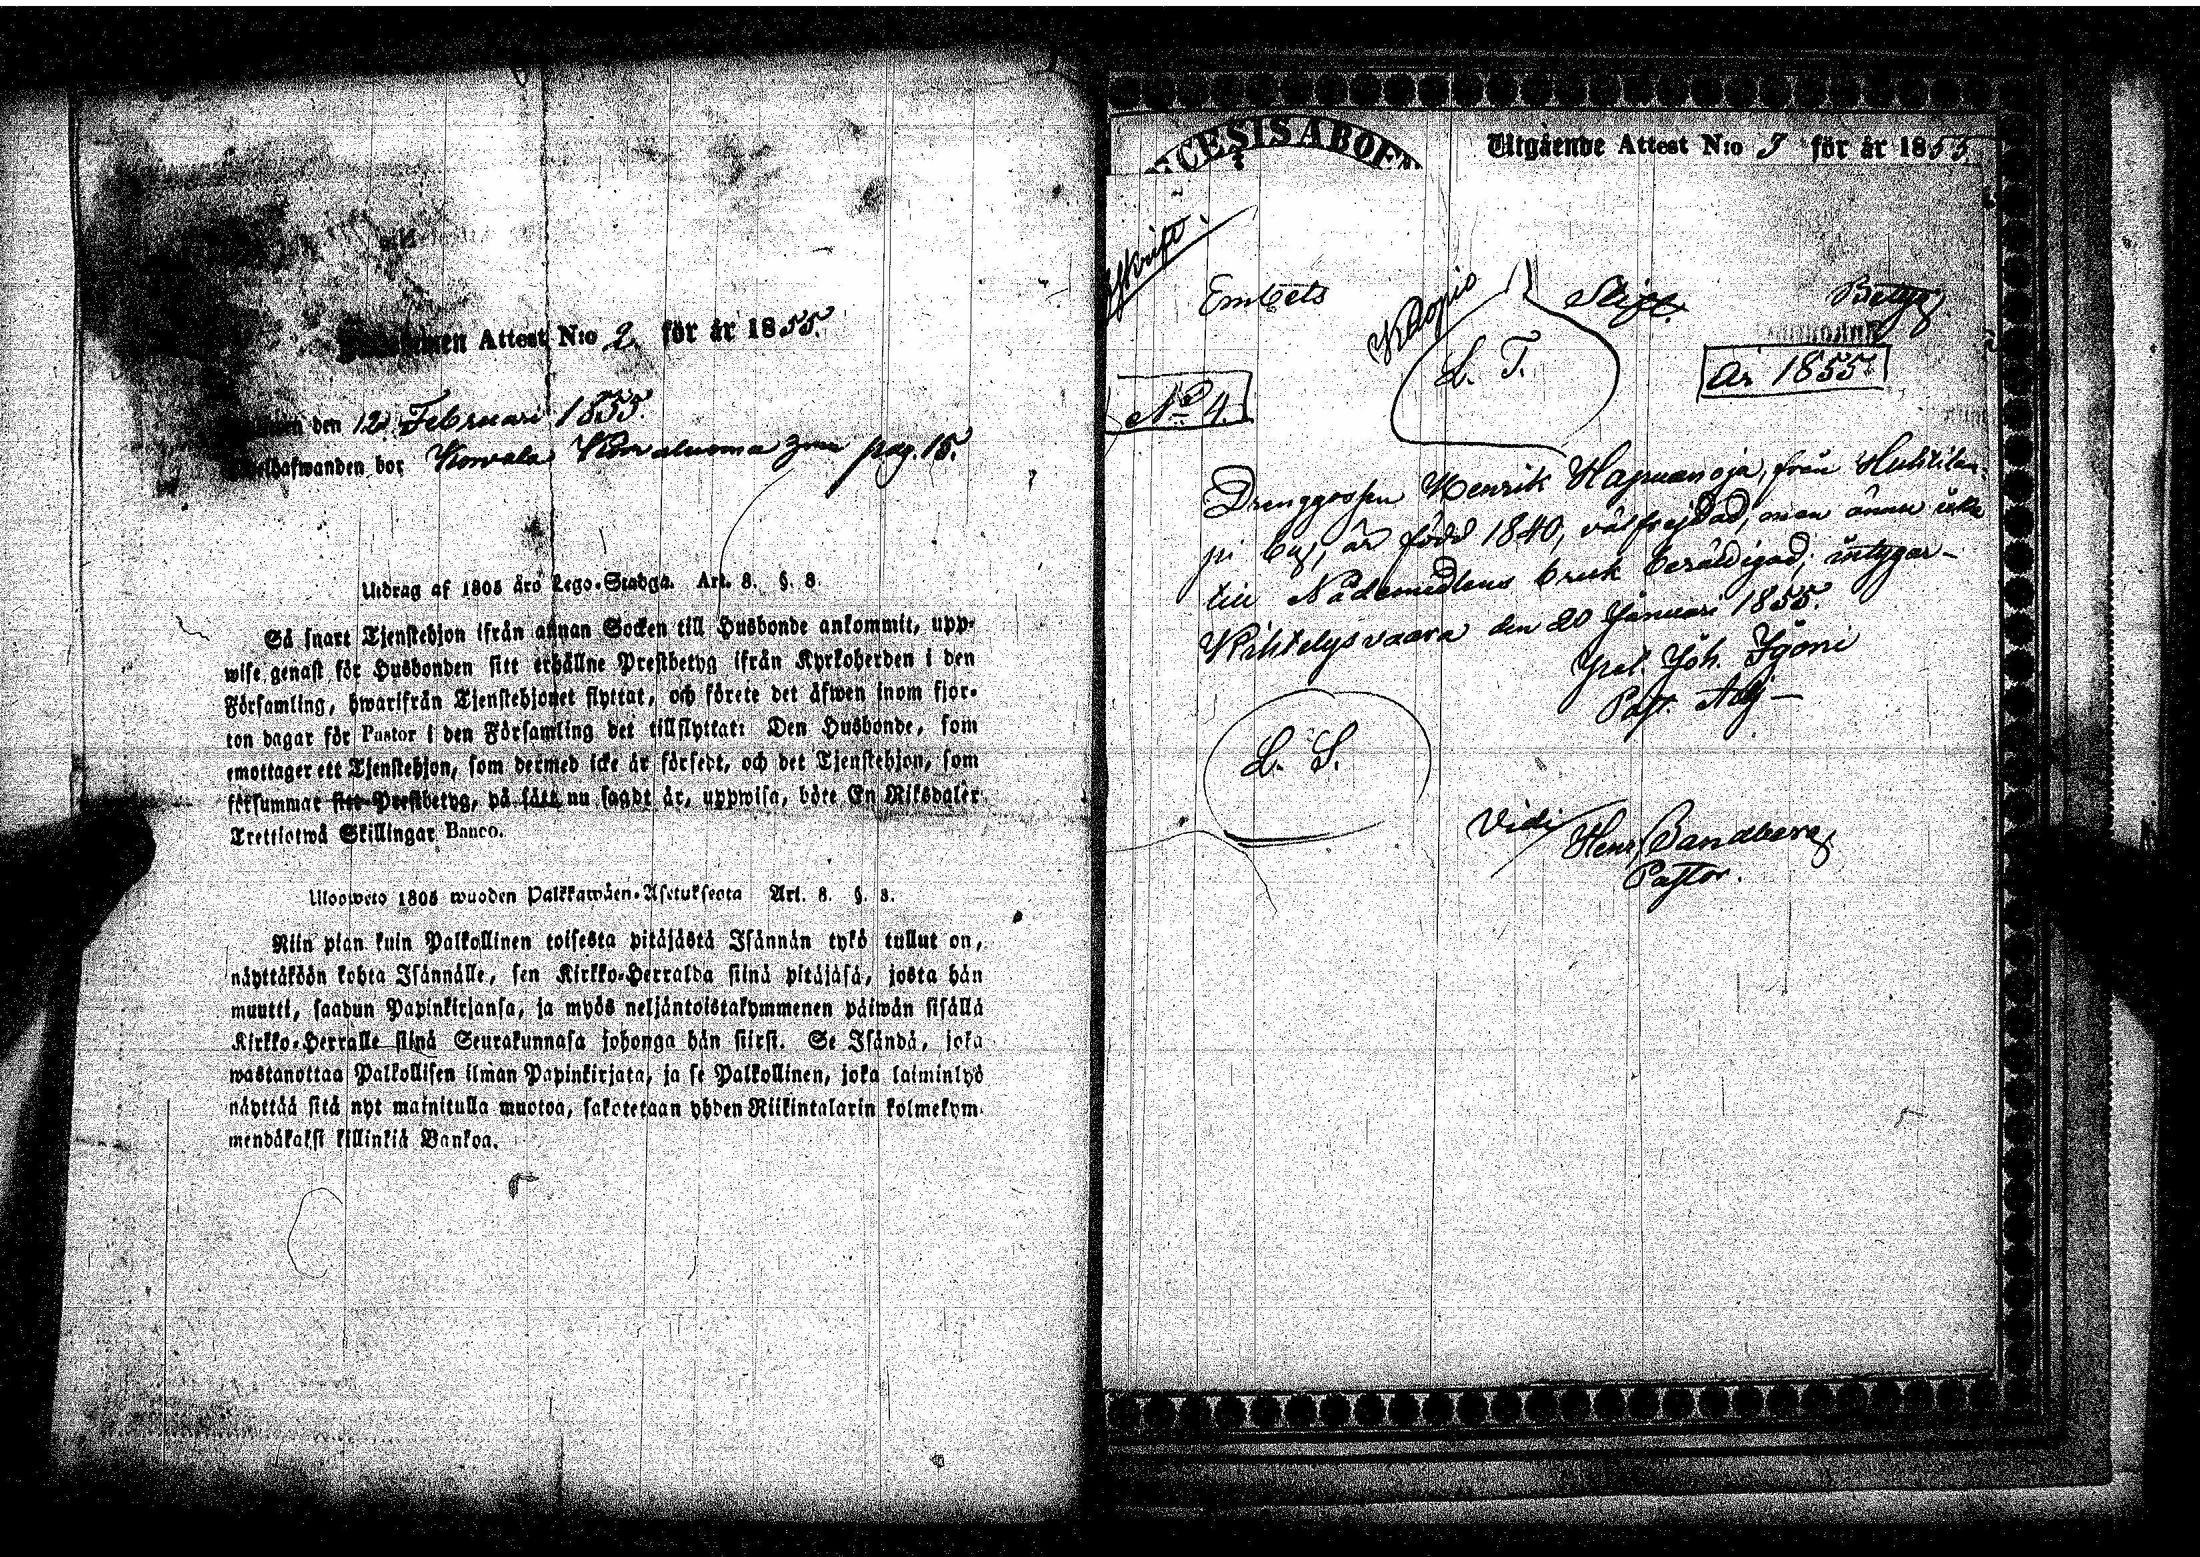 Attest N:o 2. för år 1855.
den 12 Februari 1855.
bor Korvala Korvaluoma pag. 15.
Utdrag af 1805 års Lego-Stadga. Art. 8. §. 8.
Så snart Tjenstehjon ifrån annan Socken till Husbonde ankommit, upp-
wise genast för Husbonden sitt erhållne Prestbetyg ifrån Kyrkoherden i den
Församling, hwarifrån Tjenstehjonet flyttat, och förete det äfwen inom fjor-
ton dagar för Pastor i den Församling det tillflyttat: Den Husbonde, som
emottager ett Tjenstehjon, som dermed icke är försedt, och det Tjenstehjon, som
försummar sitt Prestbetyg, på sätt nu sagdt är, uppwisa, böte En Riksdaler
Trettiotwå Skillingar Banco.
Ulosweto 1805 wuoden Palkkawäen-Asetuksesta Art. 8. §. 8.
Niin pian kuin Palkollinen toisesta pitäjästä Isännän tykö tullut on,
näyttäköön kohta Isännälle, sen Kirkko-Herralda siinä pitäjäsä, josta hän
muutti, saadun Papinkirjansa, ja myös neljäntoistakymmenen päiwän sisällä
Kirkko-Herralle siinä Seurakunnasa johonga hän siirsi. Se Isändä, joka
wastanottaa Palkollisen ilman Papinkirjata, ja se Palkollinen, joka laiminlyö
näyttää sitä nyt mainitulla muotoa, sakotetaan yhden Riikintalarin kolmekym-
mendäkaksi killinkiä Bankoa.
CESIS ABOEN
Utgående Attest N:o 3 för år 1855.
skrift
Embets Kuopio Stift. Betyg
No 4. L. T. År 1855
Drenggossen Henrik Hapuanoja, från Huhtilan-
pi by, är född 1840, välfrejdad, men ännu icke
till Nådemedlens bruk berättigad; intygar—
Kihtelysvaara den 20 Januari 1855.
Joh.
Past. Adj—
L. S.
Vidi
Henr. Sandberg
Pastor.